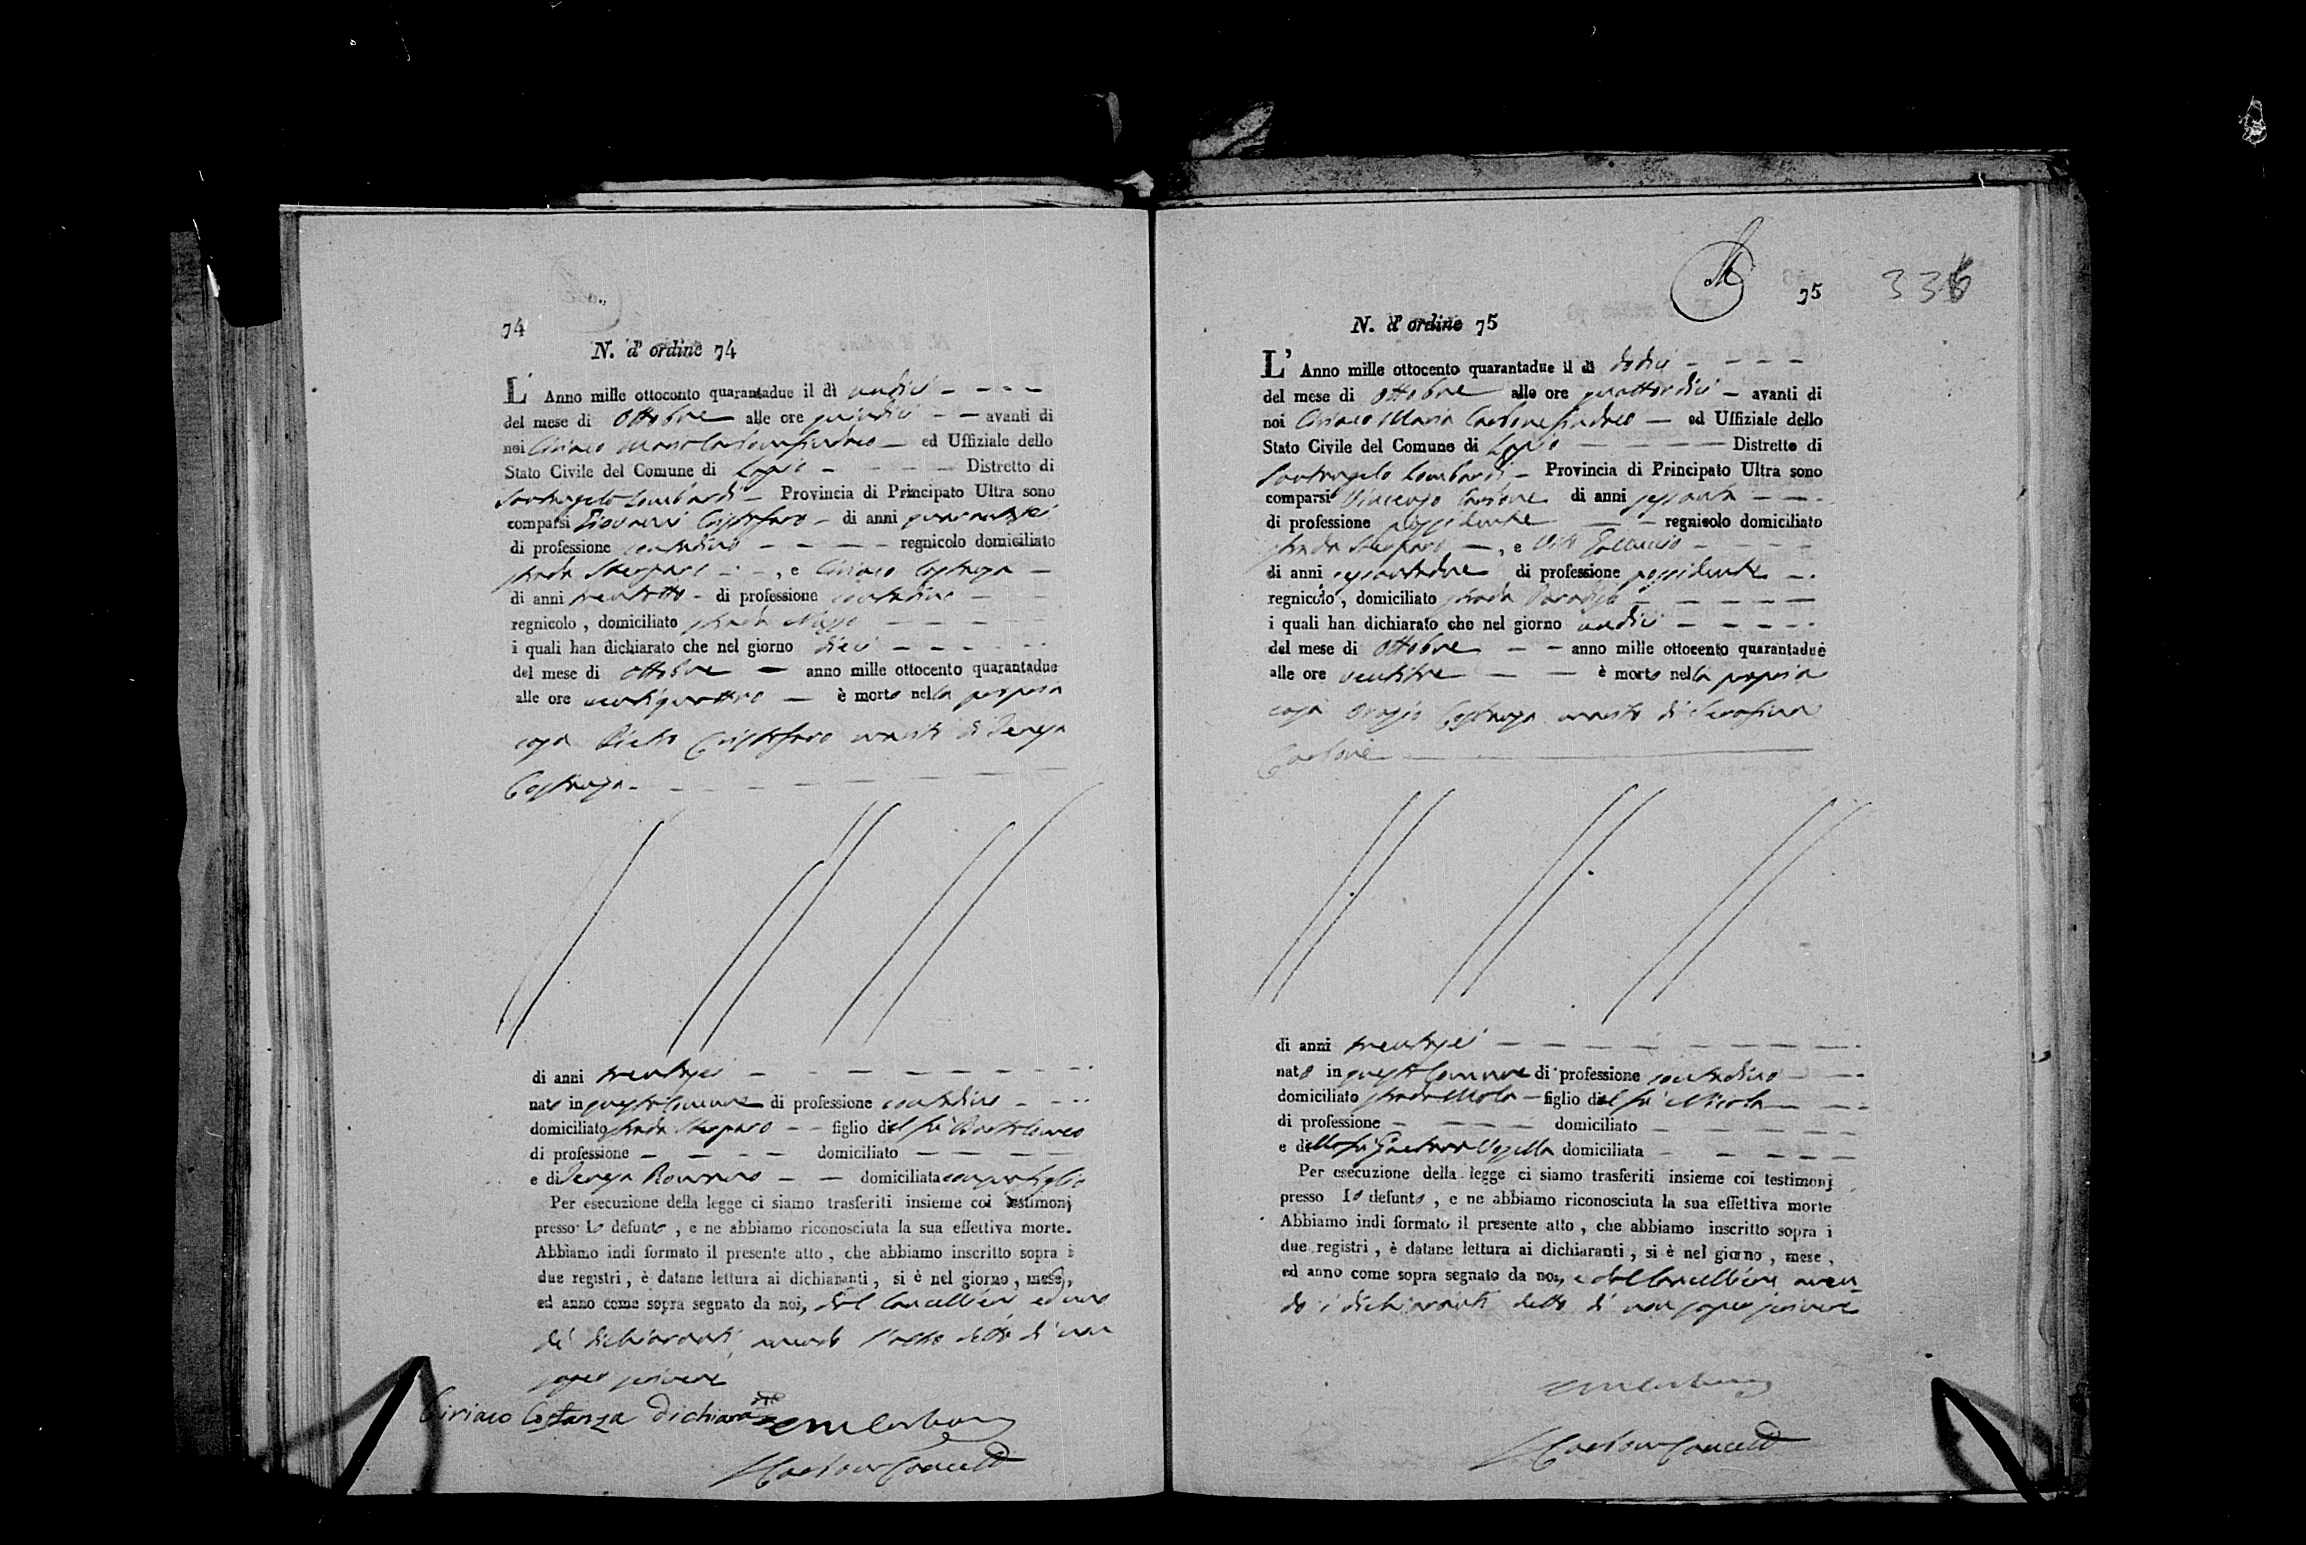 74
N. d' ordine 74
L' Anno mille ottocento quarantadue il dì undici
del mese di Ottobre alle ore quindici avanti di
noi Ciriaco Maria Carbone Sindaco ed Uffiziale dello
Stato Civile del Comune di Lapio Distretto di
Santangelo Lombardi Provincia di Principato Ultra sono
comparsi Giovanni Cristofaro di anni quarantasei
di professione contadino regnicolo domiciliato
strada , e Ciriaco Costanza
di anni trentotto di professione contadino
regnicolo , domiciliato strada
i quali han dichiarato che nel giorno dieci
del mese di Ottobre anno mille ottocento quarantadue
alle ore ventiquattro è morto nella propria
casa Cristofaro marito di Teresa
Costanza
di anni trentasei
nato in questo Comune di professione contadino
domiciliato strada figlio del fù Bartolomeo
di professione domiciliato
e di Teresa Romano domiciliata
Per esecuzione della legge ci siamo trasferiti insieme coi testimonj
presso lo defunto , e ne abbiamo riconosciuta la sua effettiva morte.
Abbiamo indi formato il presente atto , che abbiamo inscritto sopra i
due registri , è datane lettura ai dichiaranti , si è nel giorno , mese ,
ed anno come sopra segnato da noi, dal Cancelliere ed uno
dei dichiaranti, avendo l'altro detto di non
saper scrivere
Ciriaco Costanza dichiara
75
336
N. d' ordine 75
L' Anno mille ottocento quarantadue il dì dodici
del mese di Ottobre alle ore quattordici avanti di
noi Ciriaco Maria Carbone Sindaco ed Uffiziale dello
Stato Civile del Comune di Lapio Distretto di
Santangelo Lombardi Provincia di Principato Ultra sono
comparsi Vincenzo Carbone di anni sessanta
di professione possidente regnicolo domiciliato
strada , e Vito
di anni sessantadue di professione possidente
regnicolo , domiciliato strada
i quali han dichiarato che nel giorno undici
del mese di Ottobre anno mille ottocento quarantadue
alle ore ventitre è morto nella propria
casa Orazio Costanza marito di Serafina
Carbone
di anni trentasei
nato in questo Comune di professione contadino
domiciliato strada Mola figlio del fù Nicola
di professione domiciliato
e della fù Gaetana domiciliata
Per esecuzione della legge ci siamo trasferiti insieme coi testimonj
presso lo defunto , e ne abbiamo riconosciuta la sua effettiva morte
Abbiamo indi formato il presente atto , che abbiamo inscritto sopra i
due registri , è datane lettura ai dichiaranti , si è nel giorno , mese ,
ed anno come sopra segnato da noi, e dal Cancelliere aven-
do i dichiaranti detto di non saper scrivere